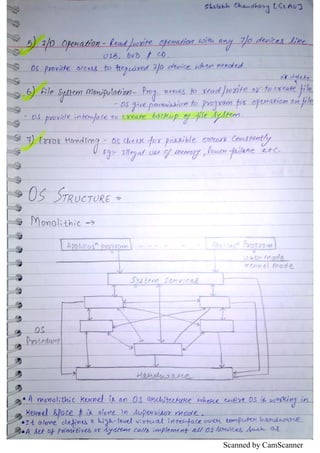 Shekhibh Chaudhary [GLAU]
5) I/O operation - Read/write operation with any I/O devices like
USB, DVD & CD.
OS provide access to required I/O device when needed.
or delete
6) File System Manipulation - Prog. needs to read/write or to create file
- OS give permission to program for operation on file
- OS provide interface to create backup of file system.
7) Error Handling - OS check for possible errors constantly
Eg:- Illegal use of memory, Power failure etc.
OS STRUCTURE =
Monolithic →
Application program - - - - - Application Program
user mode
kernel mode
System Services
OS
Procedures
Hardware
• A monolithic kernel is an OS architecture whose entire OS is working in
kernel space & is alone in supervisor mode.
• It alone defines a high-level virtual interface over computer hardware
• A set of primitives or system calls implement all OS services such as
Scanned by CamScanner